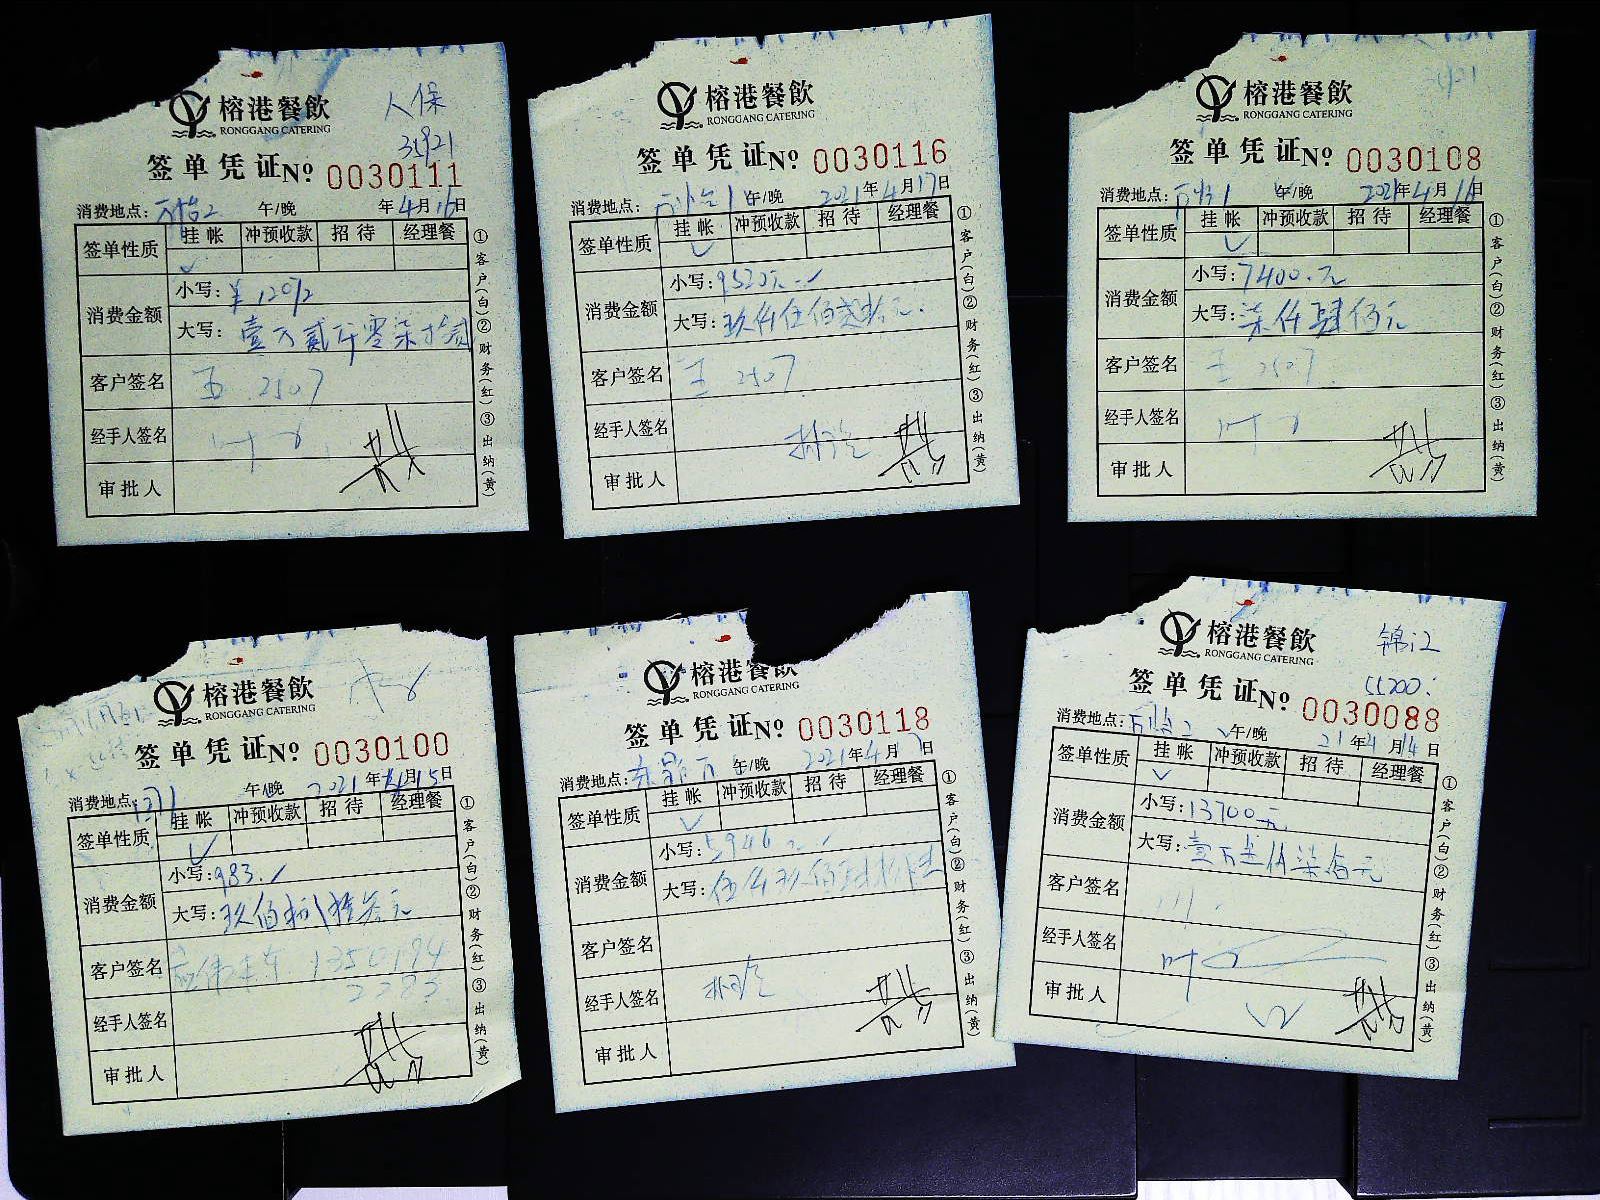 榕港餐飲
RONGGANG CATERING
人保
签单凭证 Nº 0030111
消费地点: 2 午/晚 年4月16日
签单性质 挂帐 冲预收款 招待 经理餐
✓
消费金额 小写:¥12072
大写:壹万贰仟零柒拾贰
客户签名 2507
经手人签名 叶
审批人
①客户(白)②财务(红)③出纳(黄)
榕港餐飲
RONGGANG CATERING
签单凭证 Nº 0030116
消费地点: 1 午/晚 2021年4月17日
签单性质 挂帐 冲预收款 招待 经理餐
✓
消费金额 小写:9520元
大写:玖仟伍佰贰拾元.
客户签名 王 2507
经手人签名
审批人
①客户(白)②财务(红)③出纳(黄)
榕港餐飲
RONGGANG CATERING
签单凭证 Nº 0030108
消费地点: 1 午/晚 2021年4月16日
签单性质 挂帐 冲预收款 招待 经理餐
✓
消费金额 小写:7400.元
大写:柒仟肆佰元
客户签名 王 2507
经手人签名 叶
审批人
①客户(白)②财务(红)③出纳(黄)
榕港餐飲
RONGGANG CATERING
签单凭证 Nº 0030100
消费地点: 午/晚 2021年4月15日
签单性质 挂帐 冲预收款 招待 经理餐
✓
消费金额 小写:983.
大写:玖佰捌拾叁元
客户签名 1350194
2283
经手人签名
审批人
①客户(白)②财务(红)③出纳(黄)
榕港餐飲
RONGGANG CATERING
签单凭证 Nº 0030118
消费地点: 午/晚 2021年4月 日
签单性质 挂帐 冲预收款 招待 经理餐
✓
消费金额 小写:5946
大写:伍仟玖佰肆拾陆
客户签名
经手人签名
审批人
①客户(白)②财务(红)③出纳(黄)
榕港餐飲
RONGGANG CATERING
锦江
签单凭证 Nº 0030088
消费地点: 2 午/晚 21年4月14日
签单性质 挂帐 冲预收款 招待 经理餐
✓
消费金额 小写:13700元
大写:壹万叁仟柒佰元
客户签名
经手人签名 叶
审批人
①客户(白)②财务(红)③出纳(黄)